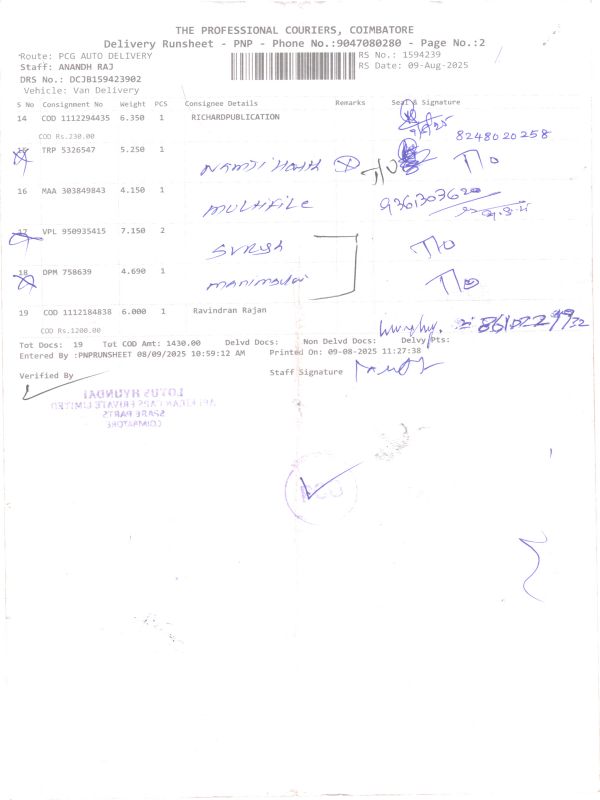 THE PROFESSIONAL COURIERS, COIMBATORE
Delivery Runsheet - PNP - Phone No.:9047080280 - Page No.:2
Route: PCG AUTO DELIVERY RS No.: 1594239
Staff: ANANDH RAJ RS Date: 09-Aug-2025
DRS No.: DCJB159423902
Vehicle: Van Delivery
S No Consignment No Weight PCS Consignee Details Remarks Seal & Signature
14 COD 1112294435 6.350 1 RICHARDPUBLICATION
COD Rs.230.00 8248020258
15 TRP 5326547 5.250 1 T/O T/O
16 MAA 303849843 4.150 1 MULTIFILE 9361303620
17 VPL 950935415 7.150 2 T/O
18 DPM 758639 4.690 1 T/O
19 COD 1112184838 6.000 1 Ravindran Rajan
COD Rs.1200.00
Tot Docs: 19 Tot COD Amt: 1430.00 Delvd Docs: Non Delvd Docs: Delvy Pts:
Entered By :PNPRUNSHEET 08/09/2025 10:59:12 AM Printed On: 09-08-2025 11:27:38
Verified By Staff Signature
LOTUS HYUNDAI
SPARE PARTS
COIMBATORE